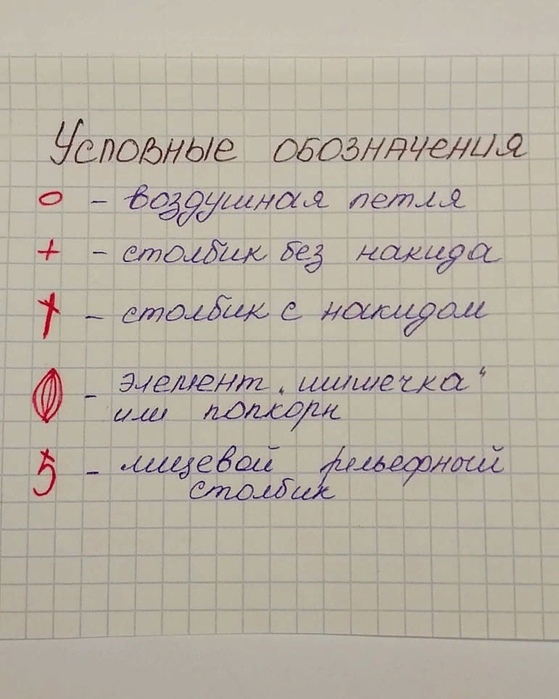 Условные обозначения
о – воздушная петля
+ – столбик без накида
† – столбик с накидом
– элемент „шишечка"
или попкорн
5 – лицевой рельефный
столбик